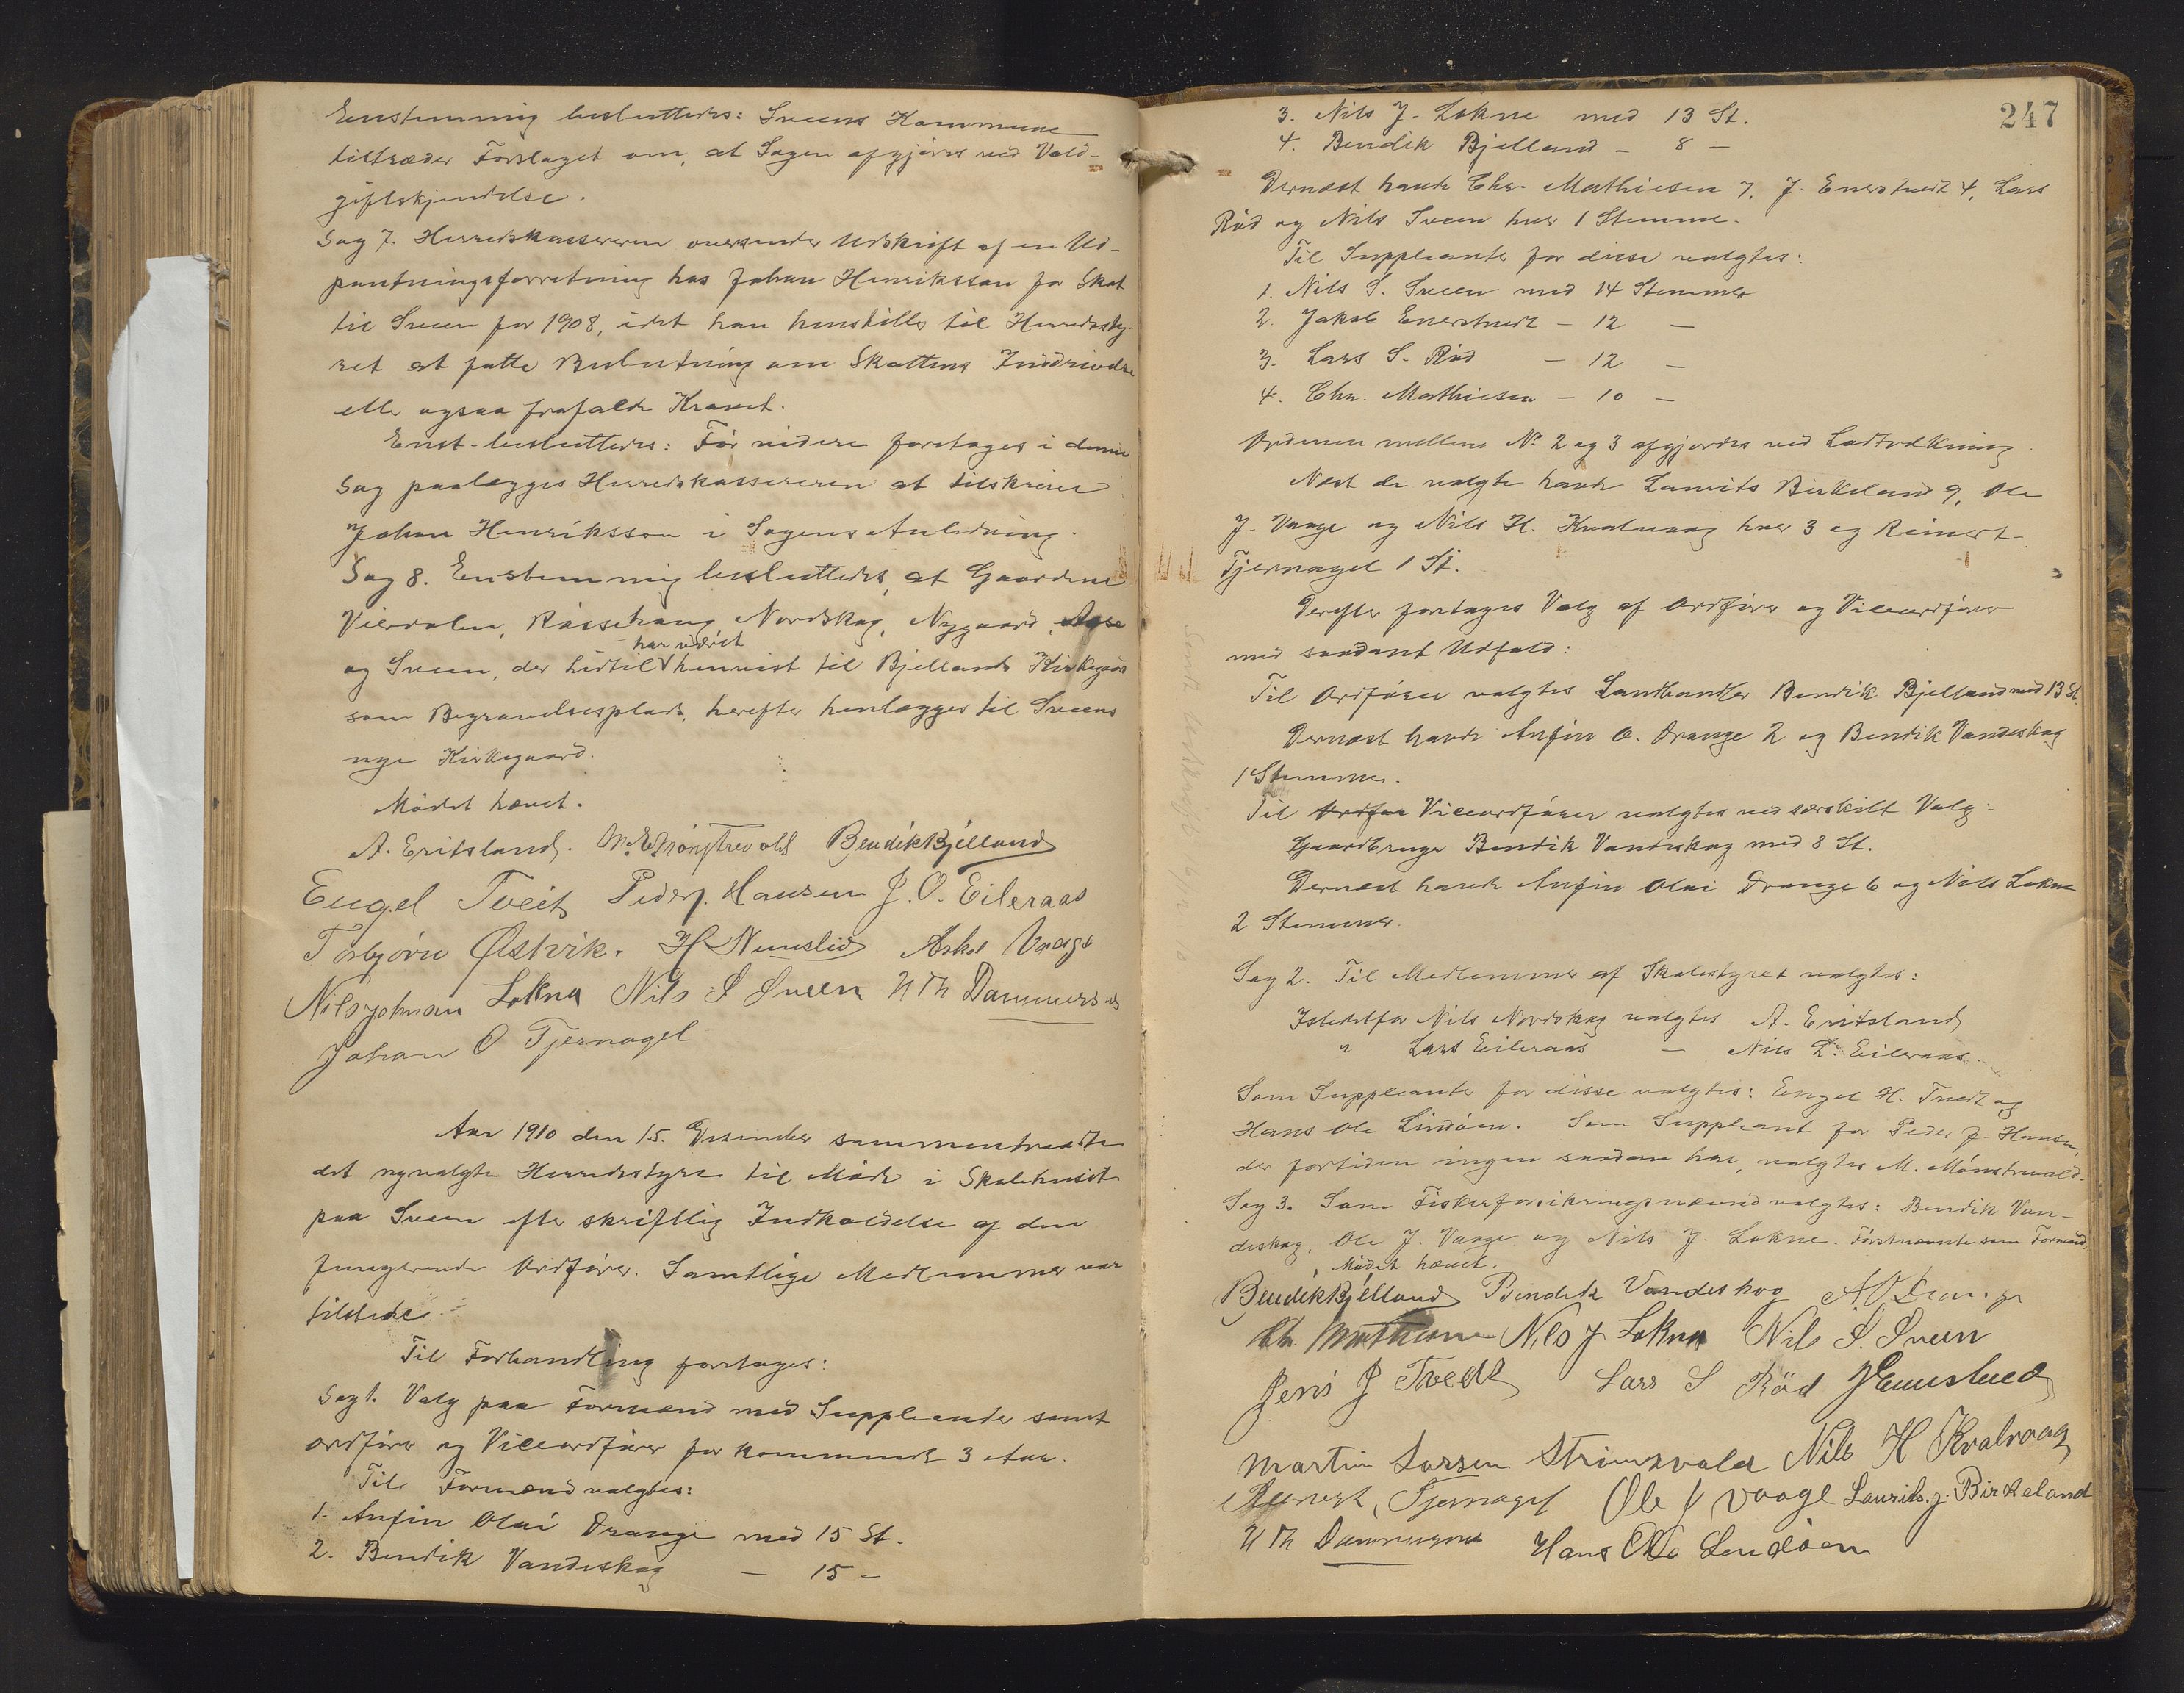 Enstemmig besluttedes: Sveens Kommune
tiltræder Forslaget om, at Sagen afgjøres ved Vold-
giftskjendelse.
Sag 7. Herredskassereren oversender Udskrift af en Ud-
pantningsforretning hos Johan Henriksson for Skat
til Sveen for 1908, idet han henstiller til Herredssty-
ret at fatte Beslutning om Skattens Inddrivelse
eller ogsaa frafalde Kravet.
Enst. besluttedes: Før videre foretages i denne
Sag paalægges Herredskassereren at tilskrive
Johan Henriksson i Sagens Anledning.
Sag 8. Enstemmig besluttedes, at Gaardene
Vierdalen, Rassehaug, Nordskog, Nygaard,
har været
og Sveen, der hidtil henvist til Bjellands Kirkegaard
som Begravelsesplads, herefter henlægges til Sveens
nye Kirkegaard.
Mødet hævet.
A. Eritsland. M. Mønstrevold Bendik Bjelland
Engel Tveit Peder J. Hansen J. O. Eileraas
Torbjørn Østvik. H Nemslid Askel Vaage
Nils Johman Lokna Nils S Sveen N Th Dammersnes
Johan O Tjernagel
Aar 1910 den 15. Desember sammentraadte
det nyvalgte Herredsstyre til Møde i Skolehuset
paa Sveen efter skriftlig Indkaldelse af den
fungerende Ordfører. Samtlige Medlemmer var
tilstede.
Til Forhandling foretages:
Sag 1. Valg paa Formænd med Suppleanter samt
ordfører og Viceordfører for kommende 3 Aar.
Til Formænd valgtes:
1. Anfin Olai Drange med 15 St.
2. Bendik Vandeskog – 15 –
247
3. Nils J. Lokne med 13 St.
4. Bendik Bjelland – 8 –
Dernæst havde Chr. Mathiesen 7, J. Enerstvedt 4, Lars
Rød og Nils Sveen hver 1 Stemme.
Til Suppleanter for disse valgtes:
1. Nils S. Sveen med 14 Stemmer
2. Jakob Enerstvedt – 12 –
3. Lars S. Rød – 12 –
4. Chr. Mathiesen – 10 –
Ordenen mellem No 2 og 3 afgjordes ved Lodtrækning
Næst de valgte havde Laurits Birkeland 9, Ole
J. Vaage og Nils H. Kvalvaag hver 3 og Reinert
Tjernagel 1 St.
Derefter foretages Valg af Ordfører og Viceordfører
med saadant Udfald:
Til Ordfører valgtes Landhandler Bendik Bjelland med 13 St.
Dernæst havde Anfin O. Drange 2 og Bendik Vandeskog
1 Stemme.
Til Ordfør Viceordfører valgtes ved særskilt Valg:
Gaardbruger Bendik Vandeskog med 8 St.
Dernæst havde Anfin Olai Drange 6 og Nils Lokne
2 Stemmer.
Sag 2. Til Medlemmer af Skolestyret valgtes:
Istedetfor Nils Nordskog valgtes A. Eritsland
" Lars Eileraas – Nils L. Eileraas
Som Suppleanter for disse valgtes: Engel H. Tvedt og
Hans Ole Lindøen. Som Suppleant for Peder J. Hansen,
der fortiden ingen saadan har, valgtes M. Mønstrevold.
Sag 3. Som Fiskerforsikringsnævnd valgtes: Bendik Van-
deskog, Ole J. Vaage og Nils J. Lokne. Førstnævnte som Formand.
Mødet hævet.
Bendik Bjelland Bendik Vandeskog A O Drange
Ch. Mathiesen Nils J Lokna Nils S. Sveen
Jens J Tvedt Lars S Rød
Martin Larsen Strømsvold Nils H Kvalvaag
Reinert Tjernagel Ole J Vaage Laurits J. Birkeland
N Th Dammersnes Hans Ole Lindøen